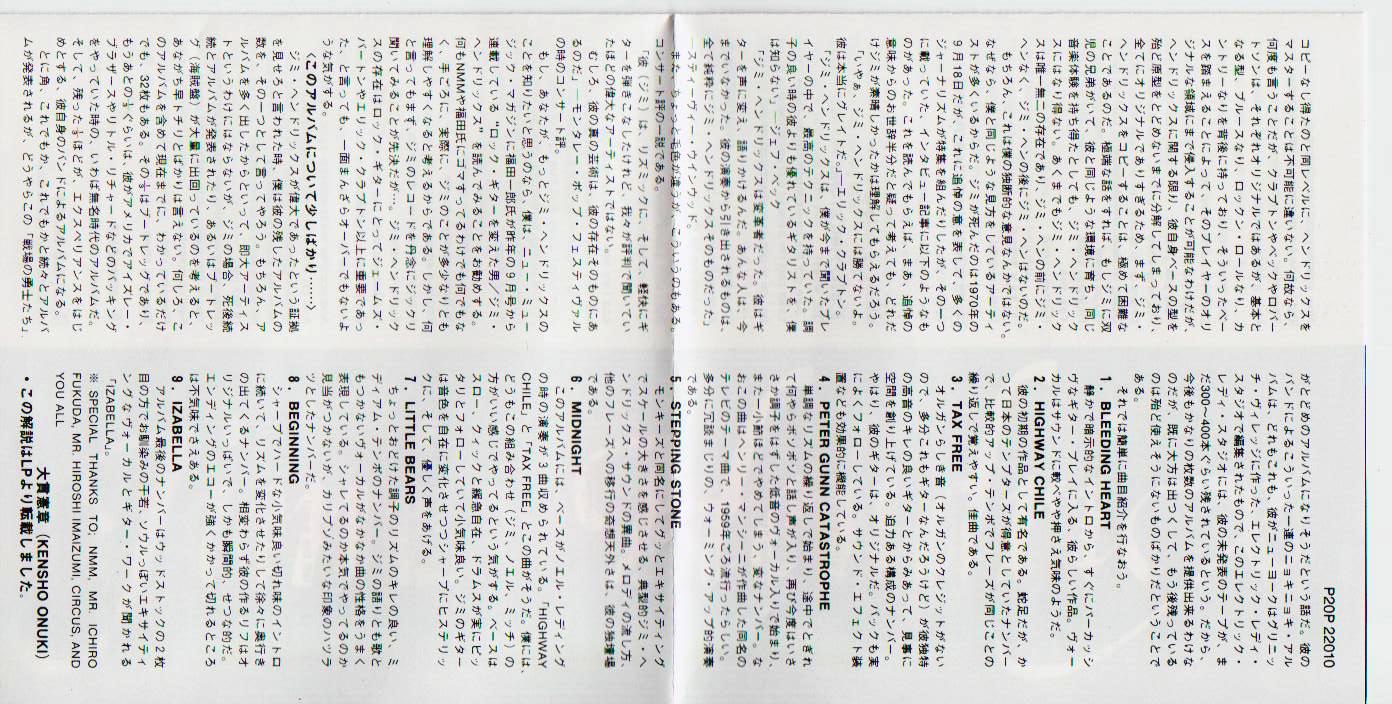 コピーをし得たのと同レベルに、ジミ・ヘンドリックスを
マスターすることは不可能に違いない。何故なら、
何度も言うことだが、クラプトンやベックやロバー
トソンは、それぞれオリジナルではあるが、基本と
なる型、ブルースなり、ロックン・ロールなり、カ
ントリーなりを背後に持っており、そういったベー
スを踏まえることによって、そのプレイヤーのオリ
ジナルな領域にまで侵入することが可能なわけだが、
ヘンドリックスに関する限り、彼自身ベースの型を
殆ど原型をとどめないまでに分解してしまっており、
全てにオリジナルでありすぎるため、まず、ジミ・
ヘンドリックスをコピーすることは、極めて困難な
ことであるのだ。極端な話をすれば、もしジミに双
児の兄弟がいて、彼と同じような環境に育ち、同じ
音楽体験を持ち得たとしても、ジミ・ヘンドリック
スには成り得ない。あくまでもジミ・ヘンドリック
スは唯一無二の存在であり、ジミ・ヘンの前にジミ・
ヘンなく、ジミ・ヘンの後にジミ・ヘンはないのだ。
もちろん、これは僕の独断的な意見なんかではない。
なぜなら、僕と同じような見方をしているアーティ
ストが多くいるからだ。ジミが死んだのは1970年の
9月18日だが、これに追悼の意を表して、多くの
ジャーナリズムが特集を組んだりしたが、その一つ
に載っていた、インタビュー記事に以下のようなも
のがあった。これを読んでもらえば、まあ、追悼の
意味からのお世辞半分だと疑って考えても、どれだ
けジミが素晴しかったかは理解してもらえるだろう。
「いやぁ、ジミ・ヘンドリックスには勝てないよ。
彼は本当にグレイトだ。」―エリック・クラプトン。
「ジミ・ヘンドリックスは、僕が今まで聞いたプレ
イヤーの中で、最高のテクニックを持っていた。調
子の良い時の彼よりも優れているギタリストを、僕
は知らない」―ジェフ・ベック
「ジミ・ヘンドリックスは変革者だった。彼はギ
ターを声に変え、語りかけるんだ。あんな人は、今
までいなかった。彼の演奏から引き出されるものは、
全て純粋にジミ・ヘンドリックスそのものだった」
―スティーヴ・ウィンウッド。
また、ちょっと毛色が違うが、こういうのもある。
コンサート評の一説である。
「彼（ジミ）は、リズミックに、そして、軽快にギ
ターを弾きこなしたけれど、我々が評判で聞いてい
たほどの偉大なアーティストではない。
むしろ、彼の真の芸術は、彼の存在そのものにあ
るのだ」―モンタレー・ポップ・フェスティヴァル
の時のコンサート評。
もし、あなたが、もっとジミ・ヘンドリックスの
ことを知りたいと思うのなら、僕は、ニュー・ミュー
ジック・マガジンに福田一郎氏が昨年の9月号から
連載している“ロック・ギターを変えた男／ジミ・
ヘンドリックス”を読んでみることをお勧めする。
何もNMMや福田氏にゴマすってるわけでも何でもな
く、手ごろに、実際に、ジミのことが多少なりとも
理解しやすくなると考えるからである。しかし、何
と言ってもまず、ジミのレコードを丹念にジックリ
聞いてみることが先決だが…。ジミ・ヘンドリック
スの存在はロック・ギターにとってジェームズ・
バートンやエリック・クラプトン以上に重要であっ
た、と言っても、一面まんざらオーバーでもないよ
うな気がする。
〈このアルバムについて少しばかり……〉
ジミ・ヘンドリックスが偉大であったという証拠
を見せろと言われた時、僕は彼の残したアルバムの
数を、その一つとして言ってやろう。もちろん、ア
ルバムを多く出したからといって、即大アーティス
トというわけにはならないが、ジミの場合、死後続
続とアルバムが発表されたり、あるいはブートレッ
グ（海賊盤）が大量に出回っているのを考えると、
あながち早トチリとばかりは言えない。何しろ、こ
のアルバムを含めて現在までに、わかっているだけ
でも、32枚もある。その⅓はブートレッグであり、
もうあとの⅓ぐらいは、彼がアメリカでアイズレー・
ブラザースやリトル・リチャードなどのバッキング
をやっていた時の、いわば無名時代のアルバムだ。
そして、残った⅓ほどが、エクスペリアンスをはじ
めとする、彼自身のバンドによるアルバムになる。
とに角、これでもか、これでもかと続々とアルバ
ムが発表されるが、どうやらこの「戦場の勇士たち」
P20P 22010
がとどめのアルバムになりそうだという話だ。彼の
バンドによるこういった一連のニョキニョキ・アル
バムは、どれもこれも、彼がニューヨークはグリニッ
チ・ヴィレッジに作った、エレクトリック・レディ・
スタジオで編集されたもので、このエレクトリック・
レディ・スタジオには、彼の未発表のテープが、ま
だ300～400本ぐらい残されているという。だから、
今後もかなりの枚数のアルバムを提供出来るわけな
のだが、既に大方は出つくして、もう後残っている
のは殆ど使えそうにないものばかりだということで
ある。
それでは簡単に曲目紹介を行なおう。
1．BLEEDING HEART
静かで暗示的なイントロから、すぐにパーカッシ
ヴなギター・プレイに入る、彼らしい作品。ヴォー
カルはサウンドに較べやや押さえ気味のようだ。
2．HIGHWAY CHILE
彼の初期の作品として有名である。蛇足だが、か
つて日本のテンプターズが得意としていたナンバー
で、比較的アップ・テンポでフレーズが同じことの
繰り返しで覚えやすい。佳曲である。
3．TAX FREE
オルガンらしき音（オルガンのクレジットがない
ので、多分これもギターなんだろうけど）が彼独特
の高音のキレの良いギターとからみあって、見事に
空間を創り上げている。迫力ある構成のナンバー。
やはり、彼のギターは、オリジナルだ。バックも実
によくフォローしている。サウンド・エフェクト装
置なども効果的に機能している。
4．PETER GUNN CATASTROPHE
単調なリズムの繰り返しで始まり、途中でとぎれ
て何やらボソボソと話し声が入り、再び今度はいさ
さか調子をはずした低音のヴォーカル入りで始まり、
また一小節ほどでやめてしまう、変なナンバー。な
おこの曲はヘンリー・マンシーニが作曲した同名の
テレビのテーマ曲で、1959年ごろ流行ったらしい。
多分に冗談まじりの、ウォーミング・アップ的演奏
である。
5．STEPPING STONE
モンキーズと同名にしてグッとエキサイティング
でスケールの大きさを感じさせる、典型的ジミ・ヘ
ンドリックス・サウンドの異曲。メロディの流し方、
他のフレーズへの移行の奇想天外は、彼の独壇場
である。
6．MIDNIGHT
このアルバムには、ベースがノエル・レディング
の時の演奏が3曲収められている。「HIGHWAY
CHILE」と「TAX FREE」とこの曲がそうだ。僕には、
どうもこの組み合わせ（ジミ、ノエル、ミッチ）の
方がいい感じでやってるという気がする。ベースは
スロー、クイックと緩急自在、ドラムスが実にピッ
タリとフォローしていて小気味良い。ジミのギター
は音色を自在に変化させつつシャープにヒステリッ
クに、そして、優しく声をあげる。
7．LITTLE BEARS
ちょっとおどけた調子のリズムのキレの良い、ミ
ディアム・テンポのナンバー。ジミの語りとも歌と
もつかないヴォーカルがなかなか曲の性格をうまく
表現している。シャレてるのか本気でやってるのか
見当がつかないが、カリプソみたいな印象のハツラ
ツとしたナンバーだ。
8．BEGINNING
シャープでハードな小気味良い切れ味のイントロ
に続いて、リズムを変化させたりして徐々に奥行き
の出てくるナンバー。相変わらず彼の作るリフはオ
リジナルいっぱいで、しかも瞬間的、せつな的だ。
エンディングのエコーが強くかかって切れるところ
は不気味でさえある。
9．IZABELLA
アルバム最後のナンバーはウッドストックの2枚
目の方でお馴染みの干吉：ソウルっぽいエキサイティ
ングなヴォーカルとギター・ワークが聞かれる
「IZABELLA」。
※ SPECIAL THANKS TO; NMM, MR. ICHIRO
FUKUDA, MR. HIROSHI IMAIZUMI, CIRCUS, AND
YOU ALL
大貫憲章（KENSHO ONUKI）
・この解説はLPより転載しました。